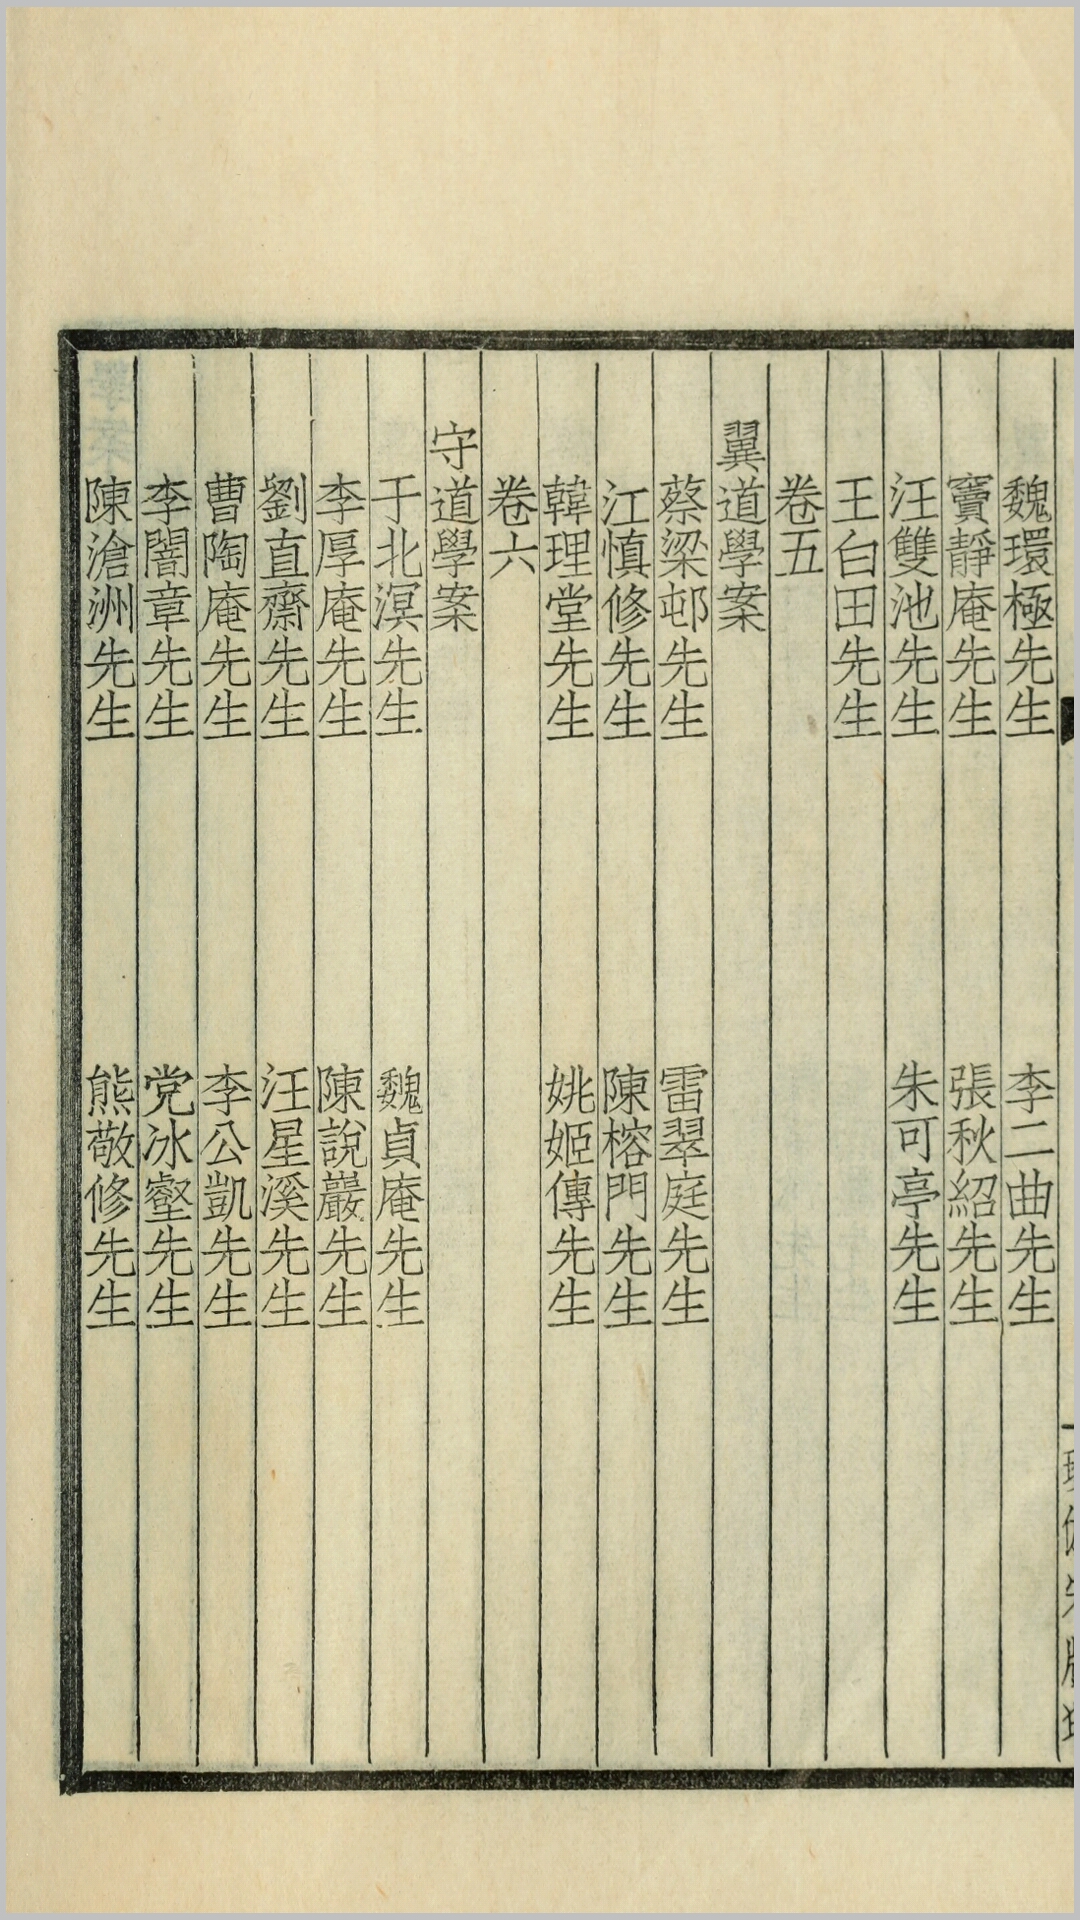 魏環極先生 李二曲先生
竇靜庵先生 張秋紹先生
汪雙池先生 朱可亭先生
王白田先生
卷五
翼道學案
蔡梁邨先生 雷翠庭先生
江慎修先生 陳榕門先生
韓理堂先生 姚姬傳先生
卷六
守道學案
于北溟先生 魏貞庵先生
李厚庵先生 陳說巖先生
劉直齋先生 汪星溪先生
曹陶庵先生 李公凱先生
李闇章先生 党冰壑先生
陳滄洲先生 熊敬修先生